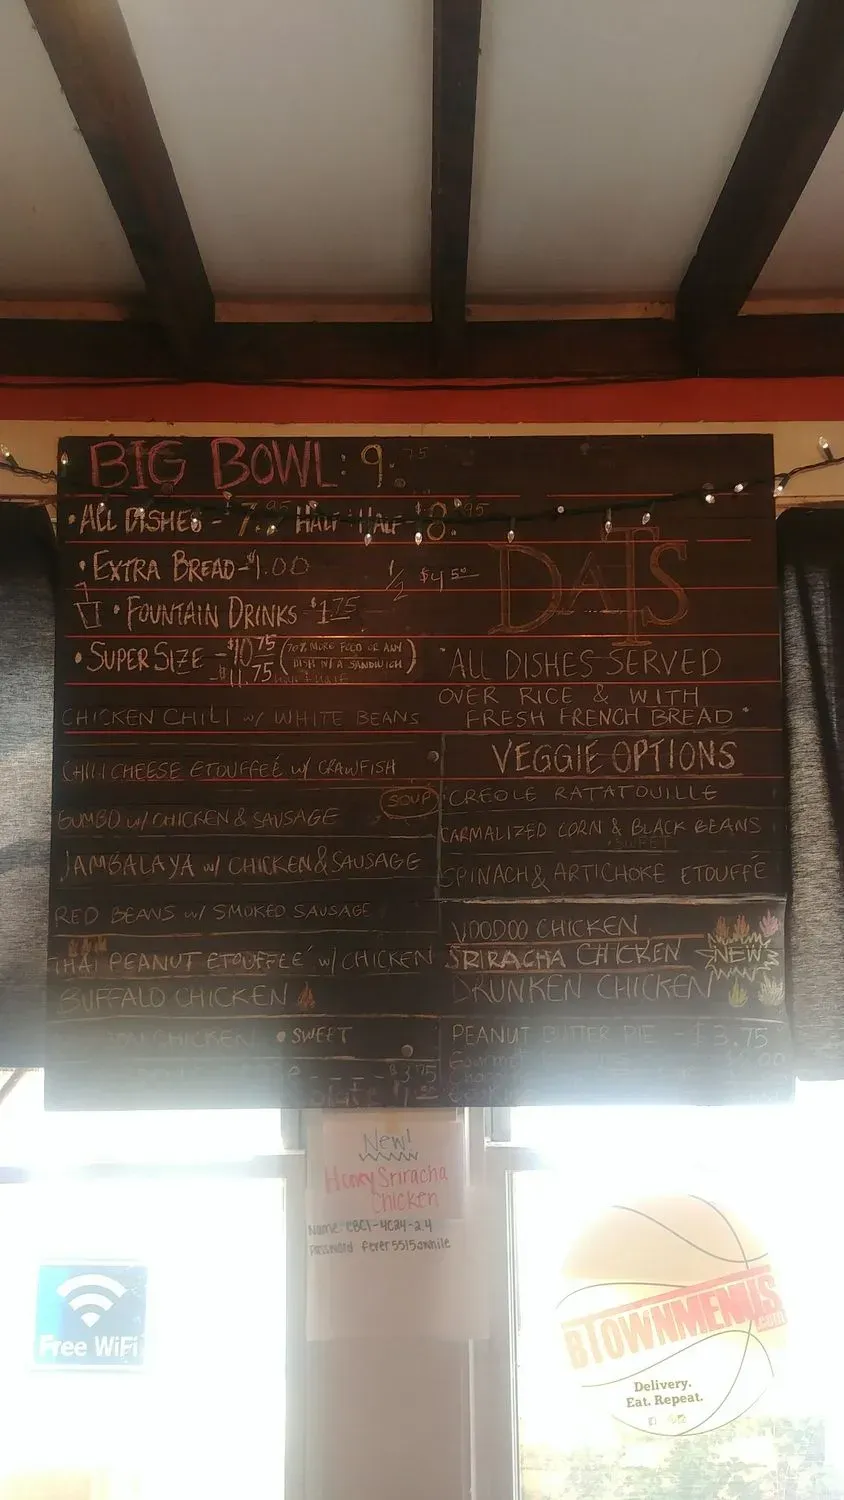 BIG BOWL: 9.75
• ALL DISHES - $7.95 HALF/HALF - $8.95
• EXTRA BREAD - $1.00 1/2 $4.50
• FOUNTAIN DRINKS $1.75
• SUPER SIZE - $10.75 (70% MORE FOOD OR ANY DISH W/ A SANDWICH)
$11.75 half & half
CHICKEN CHILI w/ WHITE BEANS
CHILI CHEESE ETOUFFEÉ w/ CRAWFISH
SOUP
GUMBO w/ CHICKEN & SAUSAGE
JAMBALAYA w/ CHICKEN & SAUSAGE
RED BEANS w/ SMOKED SAUSAGE
THAI PEANUT ETOUFFEÉ w/ CHICKEN
BUFFALO CHICKEN
CHICKEN • SWEET
$3.75
DATS
"ALL DISHES SERVED
OVER RICE & WITH
FRESH FRENCH BREAD"
VEGGIE OPTIONS
CREOLE RATATOUILLE
CARMALIZED CORN & BLACK BEANS
• SWEET
SPINACH & ARTICHOKE ETOUFFÉ
VOODOO CHICKEN
SRIRACHA CHICKEN NEW
DRUNKEN CHICKEN
PEANUT BUTTER PIE - $3.75
New!
Honey Sriracha
Chicken
Name: CBCI-4CA4-2.4
Password fever5515awhile
Free WiFi
BTOWNMENUS
.com
Delivery.
Eat. Repeat.